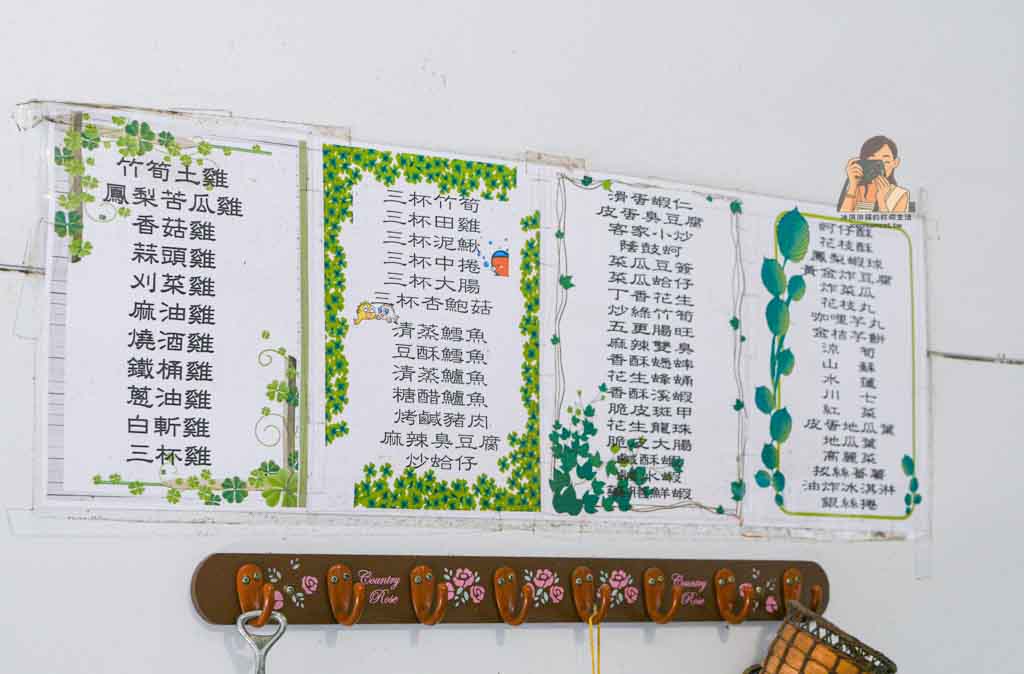 竹筍土雞
鳳梨苦瓜雞
香菇雞
蒜頭雞
刈菜雞
麻油雞
燒酒雞
鐵桶雞
蔥油雞
白斬雞
三杯雞
三杯竹筍
三杯田雞
三杯泥鰍
三杯中捲
三杯大腸
三杯杏鮑菇
清蒸鱈魚
豆酥鱈魚
清蒸鱸魚
糖醋鱸魚
烤鹹豬肉
麻辣臭豆腐
炒蛤仔
滑蛋蝦仁
皮蛋臭豆腐
客家小炒
蔭鼓蚵
菜瓜豆簽
菜瓜蛤仔
丁香花生
炒綠竹筍
五更腸旺
麻辣雙臭
香酥蟋蟀
花生蜂蛹
香酥溪蝦
脆皮斑甲
花生龍珠
脆皮大腸
鹹酥蝦
水蝦
鮮蝦
蚵仔酥
花枝酥
鳳梨蝦球
黃金炸豆腐
炸菜瓜
花枝丸
咖哩芋丸
金桔芋餅
流筍
山蘇
水蓮
川七
紅菜
皮蛋地瓜葉
地瓜葉
高麗菜
拔絲蕃薯
油炸冰淇淋
銀絲捲
Country
Rose
Country
Rose